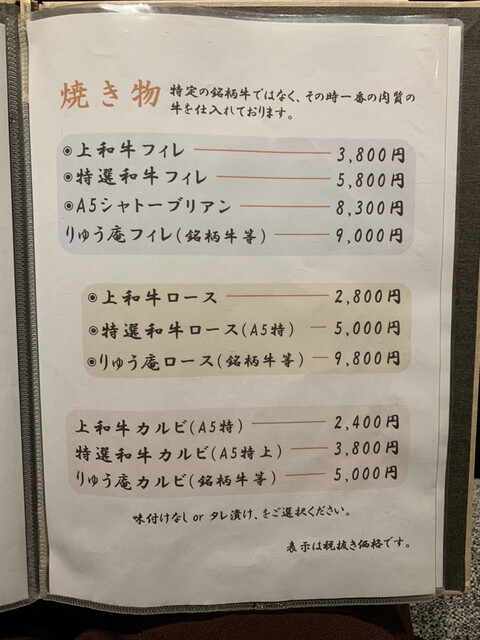 焼き物
特定の銘柄牛ではなく、その時一番の肉質の
牛を仕入れております。
◉上和牛フィレ 3,800円
◉特選和牛フィレ 5,800円
◉A5シャトーブリアン 8,300円
りゅう庵フィレ(銘柄牛等) 9,000円
◉上和牛ロース 2,800円
◉特選和牛ロース(A5特) 5,000円
◉りゅう庵ロース(銘柄牛等) 9,800円
上和牛カルビ(A5特) 2,400円
特選和牛カルビ(A5特上) 3,800円
りゅう庵カルビ(銘柄牛等) 5,000円
味付けなし or タレ漬け、をご選択ください。
表示は税抜き価格です。